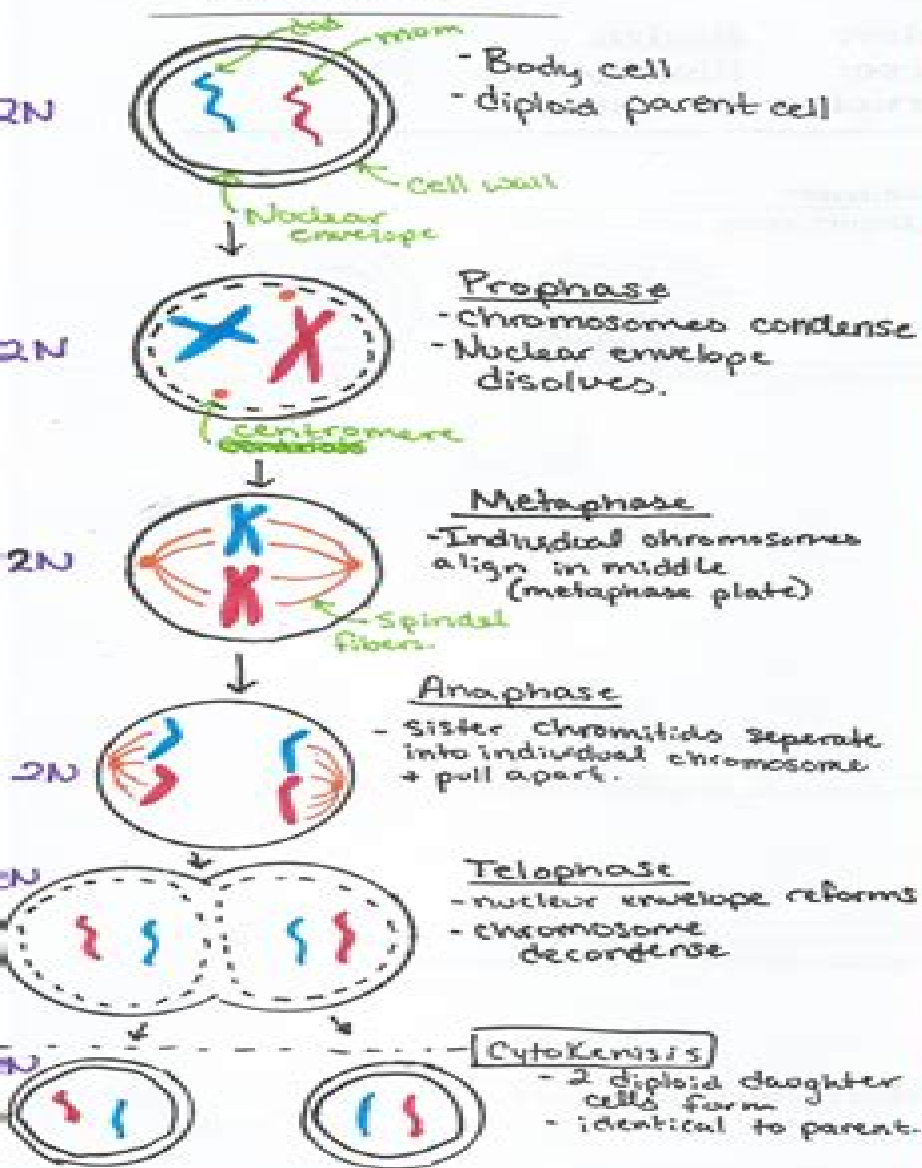 dad
mom
2N
- Body cell
- diploid parent cell
cell wall
Nuclear
envelope
2N
Prophase
- chromosomes condense
- Nuclear envelope
disolves.
centromere
2N
Metaphase
- Individual chromosomes
align in middle
(metaphase plate)
Spindel
fibers.
2N
Anaphase
- sister chromitids seperate
into individual chromosome
+ pull apart.
Telophase
- nuclear envelope reforms
- chromosome
decondense
Cytokenisis
- 2 diploid daughter
cells form
- identical to parent.